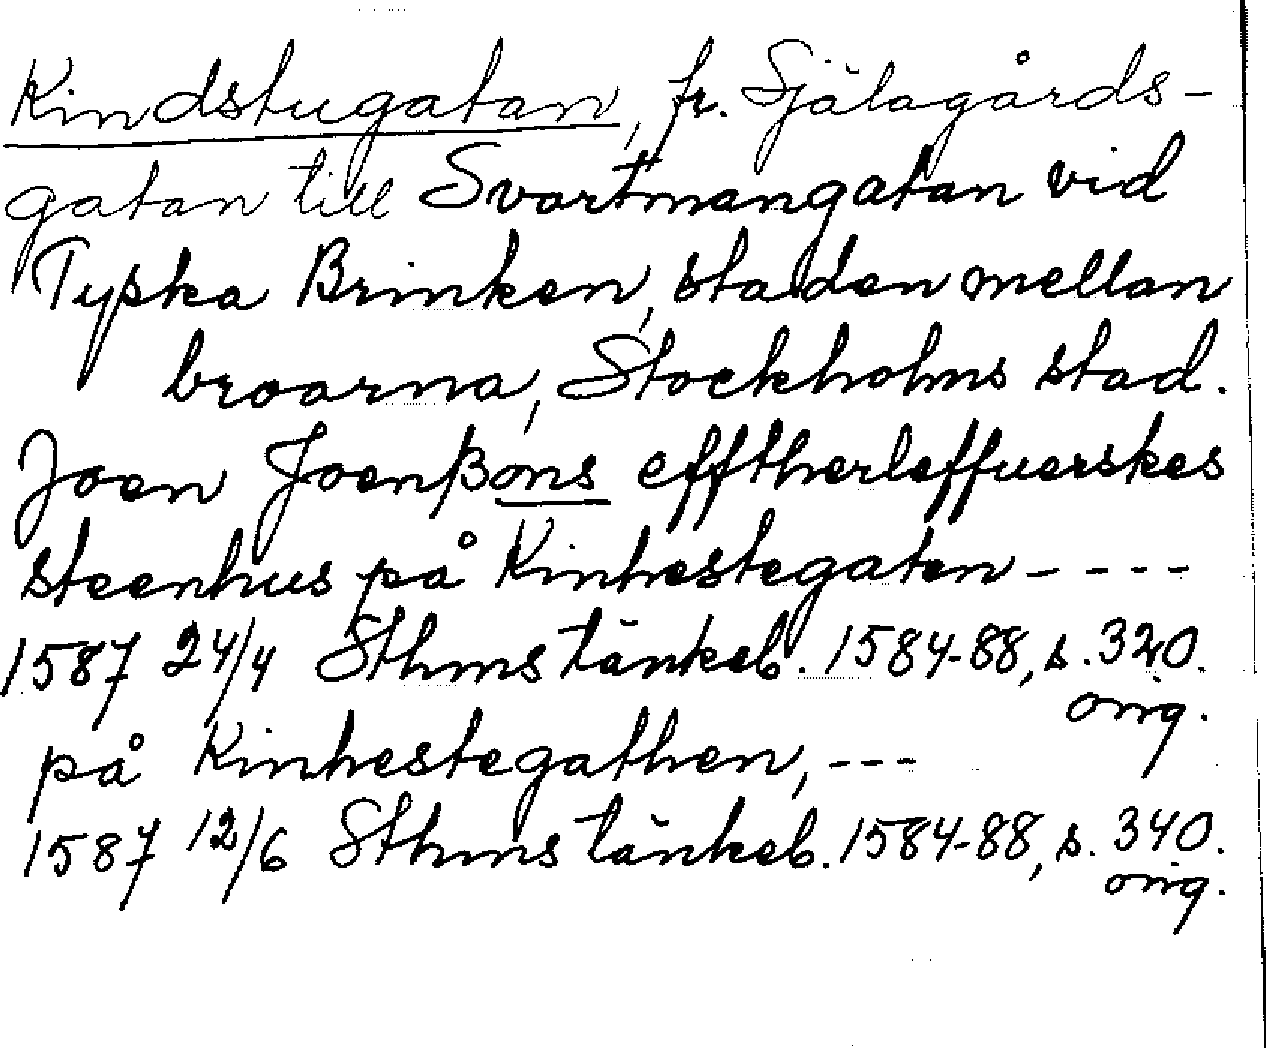 Kindstugatan, fr. Själagårds-
gatan till Svartmangatan vid
Tyska Brinken, staden mellan
broarna, Stockholms stad.
Joen Joenßons efftherleffuerskes
steenhus på Kinhestegaten - - - -
1587 24/4 Sthms tänkeb. 1584-88, s. 320.
orig.
på Kinhestegathen, - - -
1587 12/6 Sthms tänkeb. 1584-88, s. 340.
orig.